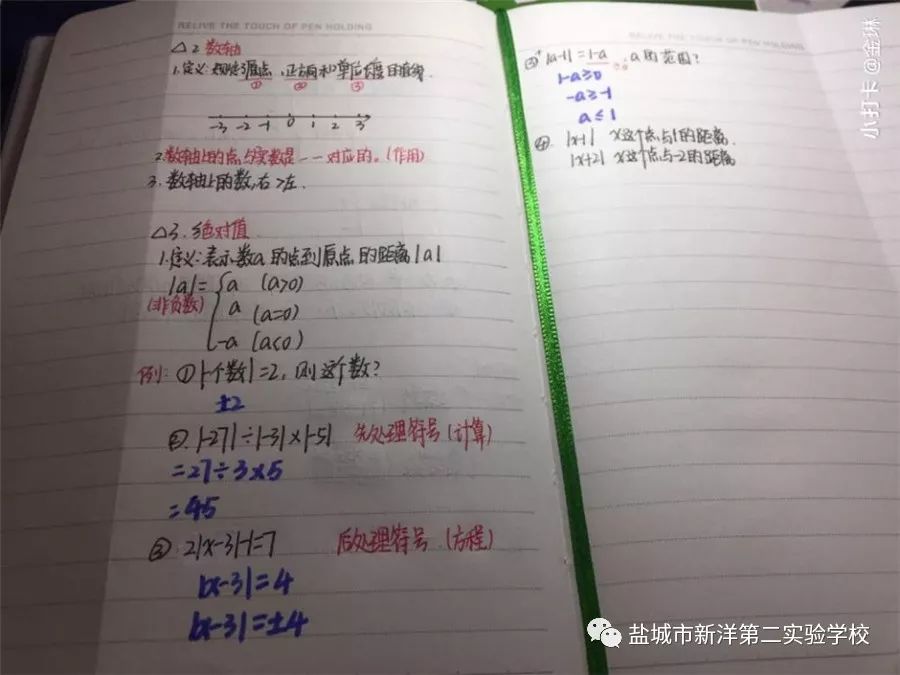 RELIVE THE TOUCH OF PEN HOLDING
△2 数轴
1.定义:规定原点、正方向和单位长度的直线.
① ② ③
-3 -2 -1 0 1 2 3
2.数轴上的点与实数是一一对应的。(作用)
3.数轴上的数,右>左.
△3.绝对值
1.定义:表示数a的点到原点的距离|a|
|a|= a (a>0)
(非负数) a (a=0)
-a (a<0)
例:①|一个数|=2,则这个数?
±2
②.|-27|÷|-3|×|-5| 先处理符号(计算)
=27÷3×5
=45
③ 2|x-3|-1=7 后处理符号(方程)
|x-3|=4
|x-3|=±4
RELIVE THE TOUCH OF PEN HOLDING
|a-1|=1-a,a的范围?
1-a≥0
-a≥-1
a≤1
④. |x-1| x这个点与1的距离.
|x+2| x这个点与-2的距离
小打卡@金琳
盐城市新洋第二实验学校